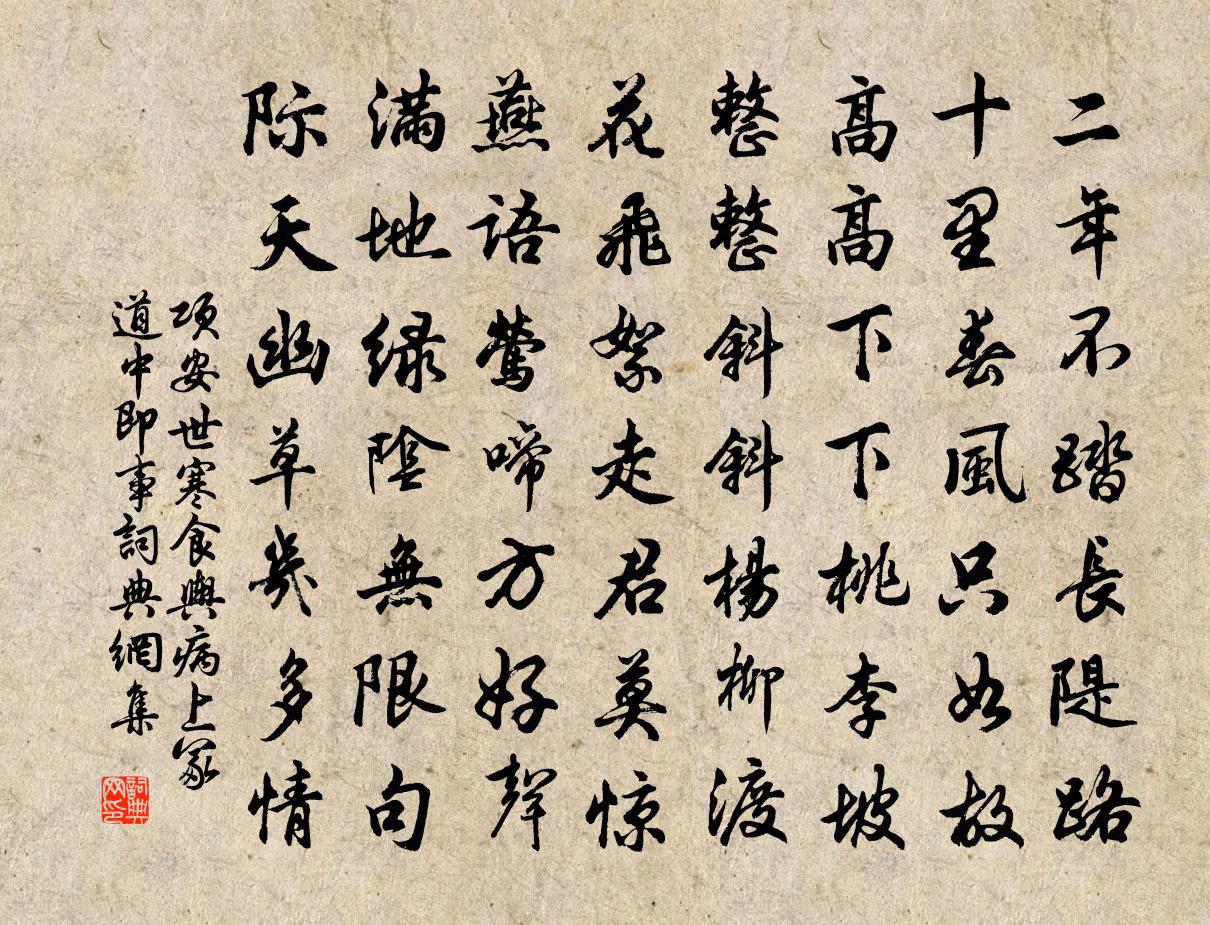 二年不踏長隄路
十里春風只如故
高高下下桃李坡
整整斜斜楊柳渡
花飛絮走君莫惊
燕語鶯啼方好聲
滿地緑陰無限句
際天幽草幾多情
項安世寒食輿病上冢
道中即事詞典網集
詞典
网印